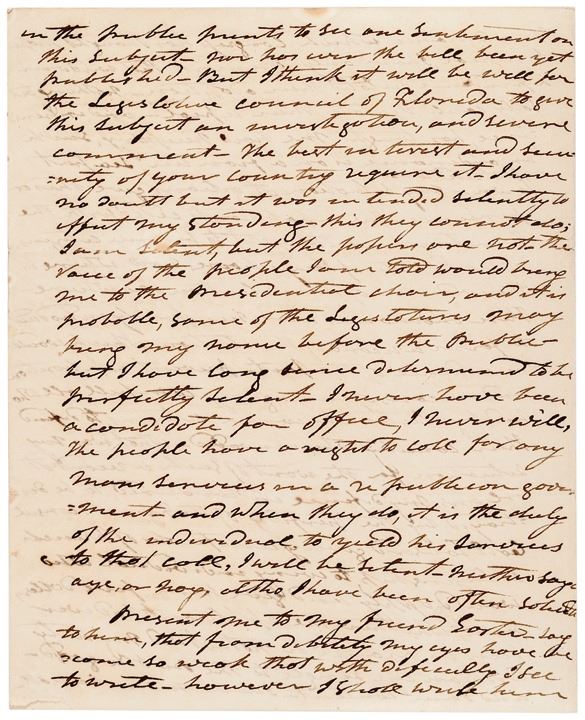 in the public prints to see one sentiment on
this subject - nor has ever the bill been yet
published - But I think it will be well for
the Legislative council of Florida to give
this subject an investigation, and severe
comment - The best interest and secu-
=rity of your country require it - I have
no doubt but it was intended silently to
effect my standing - this they cannot do;
I am silent, but the papers are not the
voice of the people I am told would bring
me to the Presidential chair, and it is
probable, some of the Legislatures may
bring my name before the Public -
but I have long since determined to be
perfectly silent - I never have been
a candidate for office, I never will,
The people have a right to call for any
mans services in a republican govern-
=ment - and when they do, it is the duty
of the individual, to yield his services
to that call, I will be silent - neither saye
aye, or nay, altho I have been often solicited
Present me to my friend Easter - say
to him, that from debility my eyes have be
=come so weak that with difficully I see
to write - however I shall write him